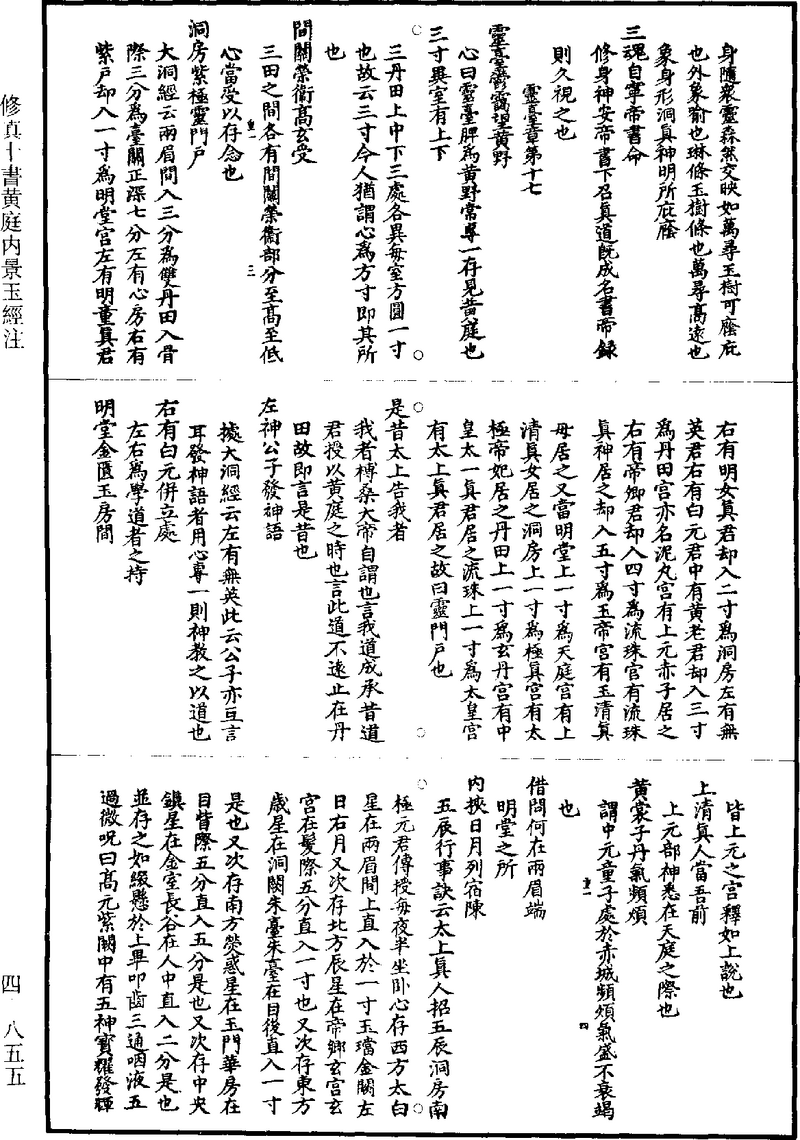 修真十書黃庭內景玉經注
四 八五五
身隨衆靈森然交映如萬尋玉樹可廕庇
也外象喻也琳條玉樹條也萬尋高遠也
象身形洞真神明所庇廕
三魂自寧帝書命
修身神安帝書下召真道既成名書帝錄
則久視之也
靈臺章第十七
靈臺鬱靄望黃野
心曰靈臺脾爲黃野常專一存見黃庭也
三寸異室有上下
三丹田上中下三處各異每室方圓一寸
也故云三寸今人猶謂心爲方寸即其所
也
間關榮衛高玄受
三田之間各有間關榮衛部分至高至低
心當受以存念也
三
洞房紫極靈門戶
大洞經云兩眉間入三分爲雙丹田入骨
際三分爲臺闕正深七分左有心房右有
紫戶却入一寸爲明堂宫左有明童真君
右有明女真君却入二寸爲洞房左有無
英君右有白元君中有黃老君却入三寸
爲丹田宫亦名泥丸宫有上元赤子居之
右有帝卿君却入四寸爲流珠宫有流珠
真神居之却入五寸爲玉帝宫有玉清真
母居之又當明堂上一寸爲天庭宫有上
清真女居之洞房上一寸爲極真宫有太
極帝妃居之丹田上一寸爲玄丹宫有中
皇太一真君居之流珠上一寸爲太皇宫
有太上真君居之故曰靈門戶也
是昔太上告我者
我者榑桑大帝自謂也言我道成承昔道
君授以黃庭之時也言此道不遠止在丹
田故即言是昔也
左神公子發神語
據大洞經云左有無英此云公子亦互言
耳發神語者用心專一則神教之以道也
右有白元併立處
左右爲學道者之持
明堂金匱玉房間
皆上元之宫釋如上說也
上清真人當吾前
上元部神悉在天庭之際也
黃裳子丹氣頻煩
謂中元童子處於赤城頻煩氣盛不衰竭
也
四
借問何在兩眉端
明堂之所
內挾日月列宿陳
五辰行事訣云太上真人招五辰洞房南
極元君傳授每夜半坐卧心存西方太白
星在兩眉間上直入於一寸玉璫金闕左
日右月又次存北方辰星在帝卿玄宫玄
宫在髮際五分直入一寸也又次存東方
歲星在洞闕朱臺朱臺在目後直入一寸
是也又次存南方熒惑星在玉門華房在
目眥際五分直入五分是也又次存中央
鎮星在金室長谷在人中直入二分是也
並存之如綴懸於上畢叩齒三通咽液五
過微呪曰高元紫闕中有五神寳耀發輝